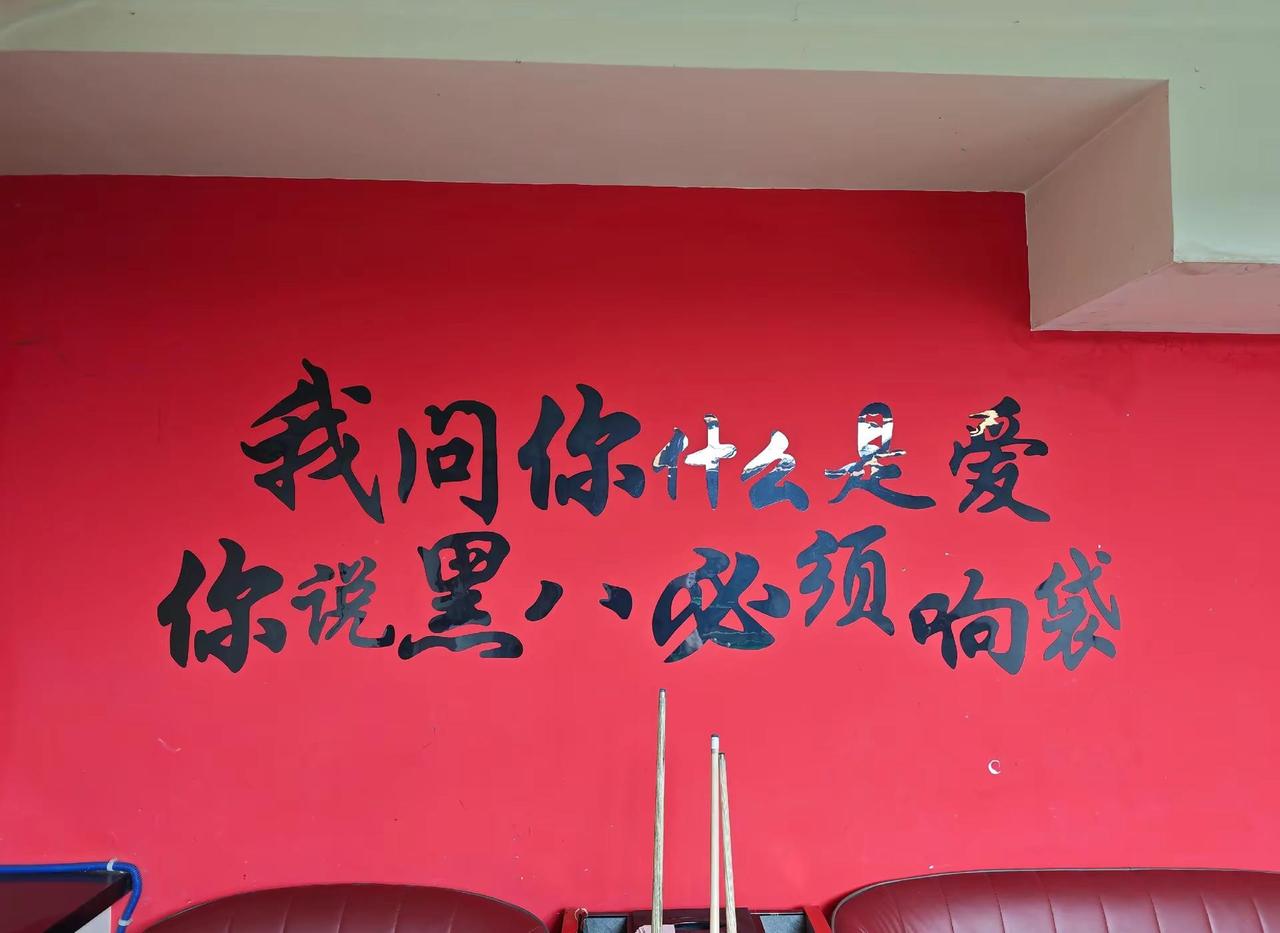 我问你什么是爱
你说黑八必须响袋